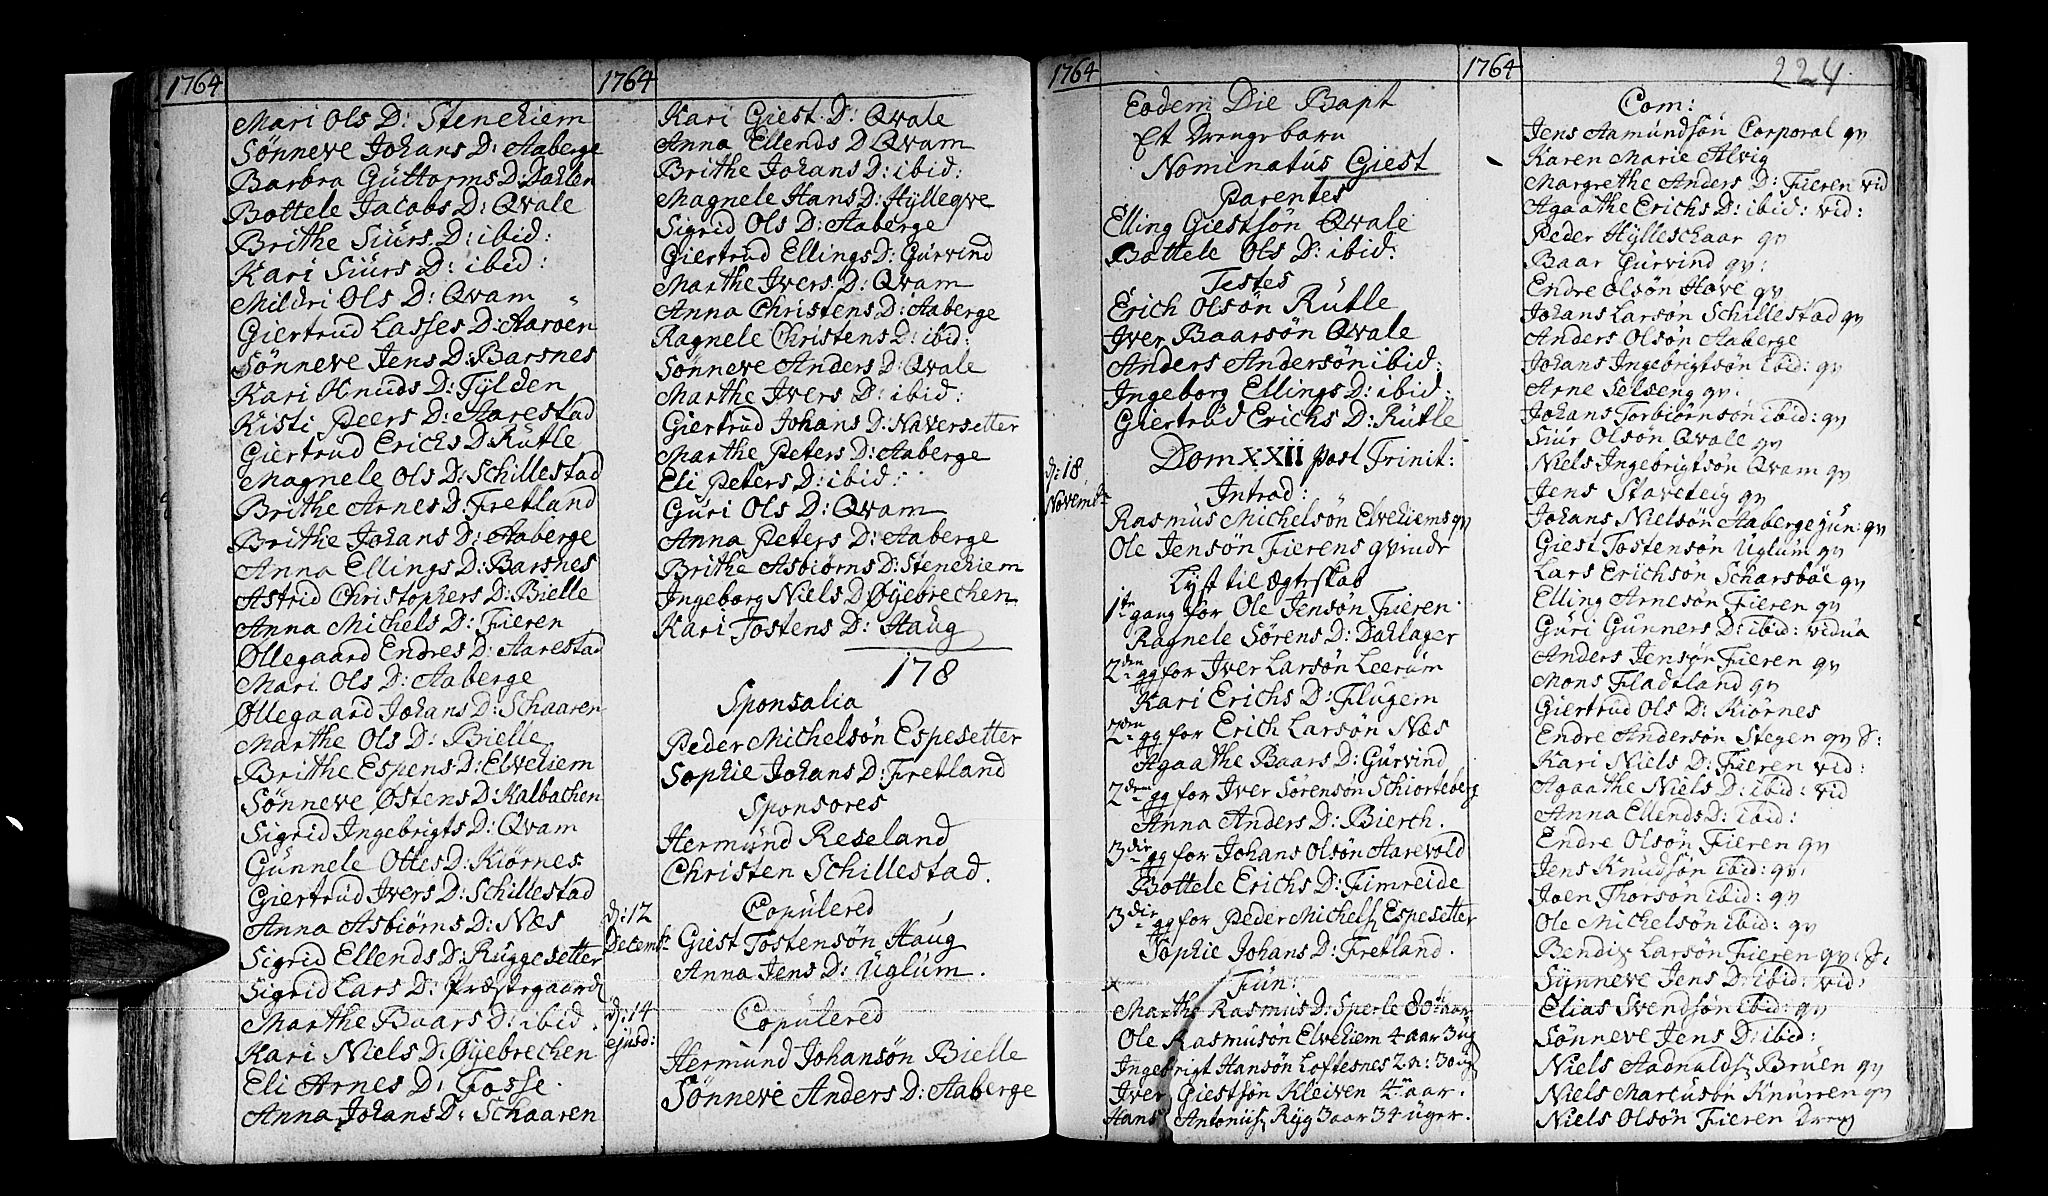 1764
Mari Ols D: Stenehiem
Sönneve Johans D: Aaberge
Barbra Guttorms D: Dahlen
Bottele Jacobs D: Qvale
Brithe Siürs D: ibid:
Kari Siürs D: ibid:
Mildri Ols D: Qvam
Giertrud Lasses D: Aaroen
Sönneve Jens D: Barsnes
Kari Knuds D: Tylden
Kisti Peers D: Aarestad
Giertrud Erichs D: Rutle
Magnele Ols D: Schillestad
Brithe Arnes D: Fretland
Brithe Johans D: Aaberge
Anna Ellings D: Barsnes
Astrid Christophers D: Bielle
Anna Michels D: Fieren
Øllegaard Endres D: Aarestad
Mari Ols D: Aaberge
Øllegaard Johans D: Schaaren
Marthe Ols D: Bielle
Brithe Espens D: Elvehiem
Sønneve Østens D: Kalbachen
Sigrid Ingebrigts D: Qvam
Gunnele Ottes D: Kiörnes
Giertrud Ivers D: Schillestad
Anna Asbiörns D: Næs
Sigrid Ellends D: Ruggesetter
Sigrid Lars D: Præstegaard
Marthe Baars D: ibid.
Kari Niels D: Øyebrechen
Eli Arnes D: Fosse.
Anna Johans D: Schaaren
1764
Kari Giest D: Qvale
Anna Ellends D Qvam
Brithe Johans D: ibid:
Magnele Hans D: Hylleqve
Sigrid Ols D: Aaberge
Giertrud Ellings D: Gurvind
Marthe Ivers D: Qvam
Anna Christens D: Aaberge
Ragnele Christens D: ibid:
Sønneve Anders D: Qvale
Marthe Ivers D: ibid:
Giertrud Johans D: Naversetter
Marthe Peters D: Aaberge
Eli Peters D: ibid:
Guri Ols D: Qvam
Anna Peters D: Aaberge
Brithe Asbiørns D: Stenehiem
Ingeborg Niels D Øyebrechen
Kari Tostens D: Haug
178
Sponsalia
Peder Michelsön Espesetter
Sophie Johans D: Fretland
Sponsores
Hermund Reseland
Christen Schillestad.
d: 12 Decembr
Copulered
Giest Tostensön Haug
Anna Jens D: Uglum.
d: 14 ejusd:
Copulered
Hermund Johansön Bielle
Sönneve Anders D: Aaberge
1764
Eodem Die Bapt
Et Drengebarn
Nominatus Giest
Parentes
Elling Giestsön Qvale
Bottele Ols D: ibid:
Testes
Erich Olsön Rutle
Iver Baarsön Qvale
Anders Andersön ibid:
Ingeborg Ellings D: ibid:
Giertrud Erichs D: Rutle
d: 18 Novembr
Dom XXII post Trinit:
Introd:
Rasmus Michelsön Elvehiems qv
Ole Jensön Fierens qvinde
Lyst til Ægteskab
1te gang for Ole Jensön Fieren
Ragnele Sörens D: Dahlager
2den gg for Iver Larsön Leerum
Kari Erichs D: Flugem
2den gg for Erich Larsön Næs
Agaathe Baars D: Gurvind
2den gg for Iver Sörensön Schiorteberg
Anna Anders D: Bierch.
3die gg for Johans Olsön Aarevold
Bottele Erichs D: Fimreide
3die gg for Peder Michels: Espesetter
Sophie Johans D: Fretland.
x Fun:
Marthe Rasmus D: Sperle 80 aar
Ole Rasmusön Elvehiem 4 aar 3 ug
Ingebrigt Hansön Loftesnes 2 a: 30 ug
Iver Giestsön Kleiven 4 aar.
Hans Antonius: Ryg 3 aar 34 uger.
1764
224.
Com:
Jens Aamundsön Corporal qv
Karen Marie Alvig
Margrethe Anders D: Fieren vid
Agaathe Erichs D: ibid: vid:
Peder Hylleschaar qv
Baar Gurvind qv:
Endre Olsön Hove qv
Johans Larsön Schillestad qv
Anders Olsön Aaberge
Johans Ingebrigtsön ibid: qv
Arne Selseng qv:
Johans Torbiörnsön ibid: qv
Siur Olsön Qvale qv
Niels Ingebrigtsön Qvam qv
Jens Staveteig qv
Johans Nielsön Aaberge jun: qv
Giest Tostensön Uglum qv
Lars Erichsön Scharsböe qv
Elling Arnesön Fieren qv
Guri Gunners D: ibid: vidua
Anders Jensön Fieren qv
Mons Fladtland qv
Giertrud Ols D: Kiörnes
Endre Andersön Stegen qv S:
Kari Niels D: Fieren vid:
Agaathe Niels D: ibid: vid
Anna Ellends D: ibid:
Endre Olsön Fieren qv
Jens Knudsön ibid: qv:
Joen Thorsön ibid: qv
Ole Michelsön ibid: qv
Bendix Larsön Fieren qv: S:
Synneve Jens D: ibid: vid:
Elias Svendsön ibid: qv
Sönneve Jens D: ibid:
Niels Aadnalds: Bruen qv
Niels Marcusön Knurren qv
Niels Olsön Fieren Dreng